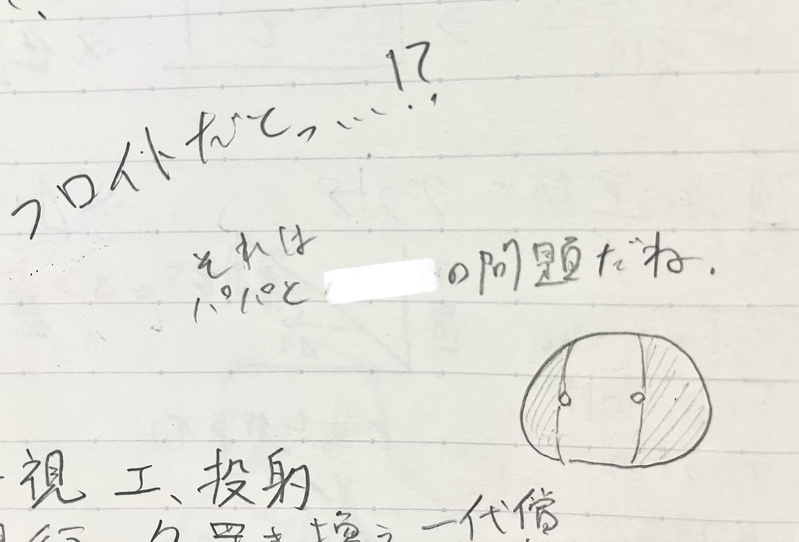 フロイトだとっ…!?
それは
パパと の問題だね.
視 エ、投射
置き換え 一代償